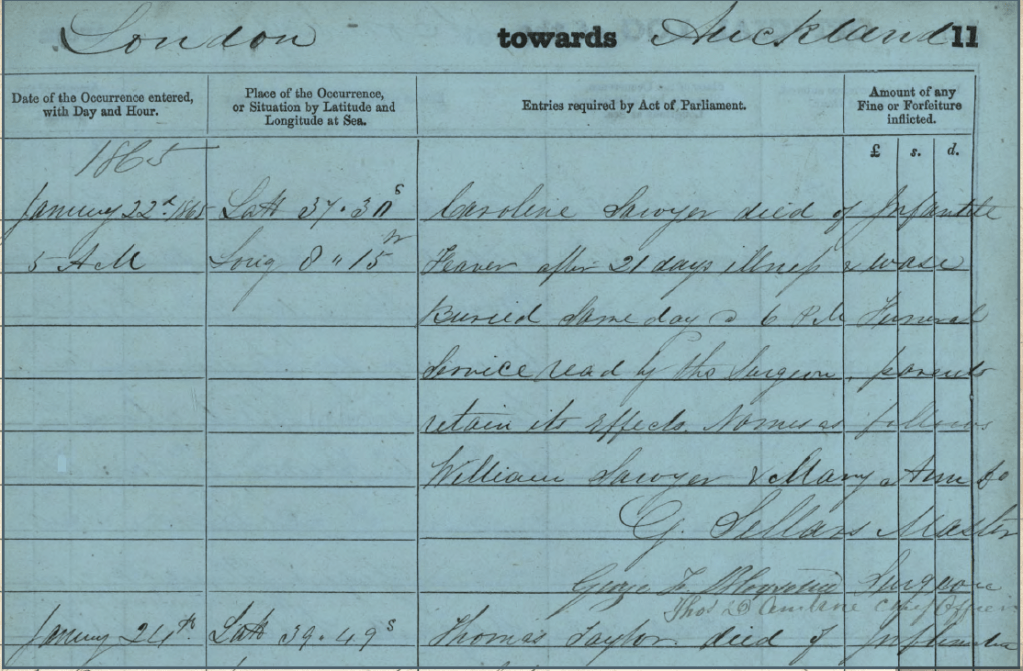 London towards Auckland 11
Date of the Occurrence entered, with Day and Hour.
Place of the Occurrence, or Situation by Latitude and Longitude at Sea.
Entries required by Act of Parliament.
Amount of any Fine or Forfeiture inflicted.
£ s. d.
1865
January 22d 1865 Latt 37.30 s Caroline Sawyer died of Infantile
5 AM Long 8 " 15 w Feaver after 21 days illness & wase
Buried Same day @ 6 PM Funeral
Service read by the Surgeon, parents
retain its effects. Names as follows
William Sawyer & Mary Ann Do
G. Sellars Master
George Surgeon
Thos Chief Officer
January 24th Latt 39.49 s Thomas Taylor died of